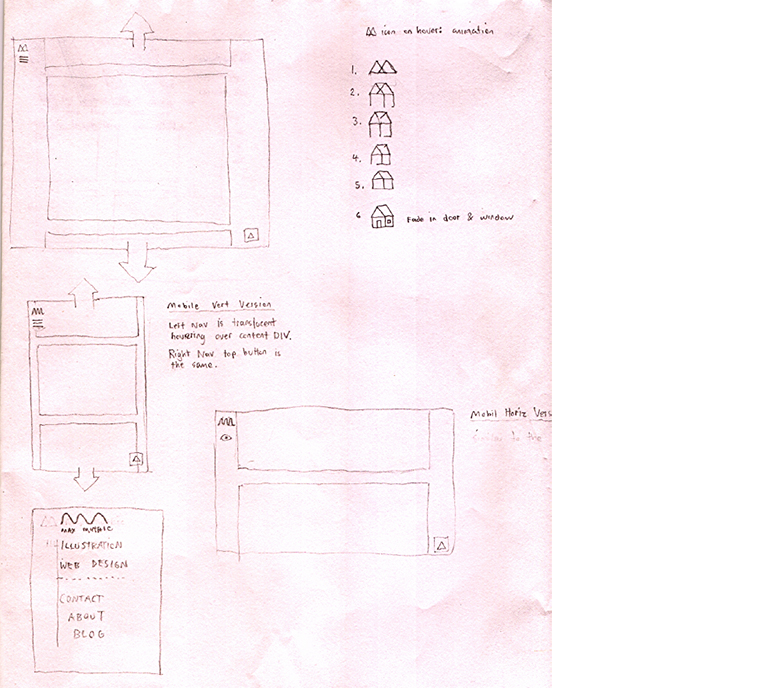 icon on hover: animation
1.
2.
3.
4.
5.
6 Fade in door & window
Mobile Vert Version
Left Nav is translucent
hovering over content DIV.
Right Nav top button is
the same.
Mobil Horiz Vers
Similar to the
MAX
ILLUSTRATION
WEB DESIGN
CONTACT
ABOUT
BLOG